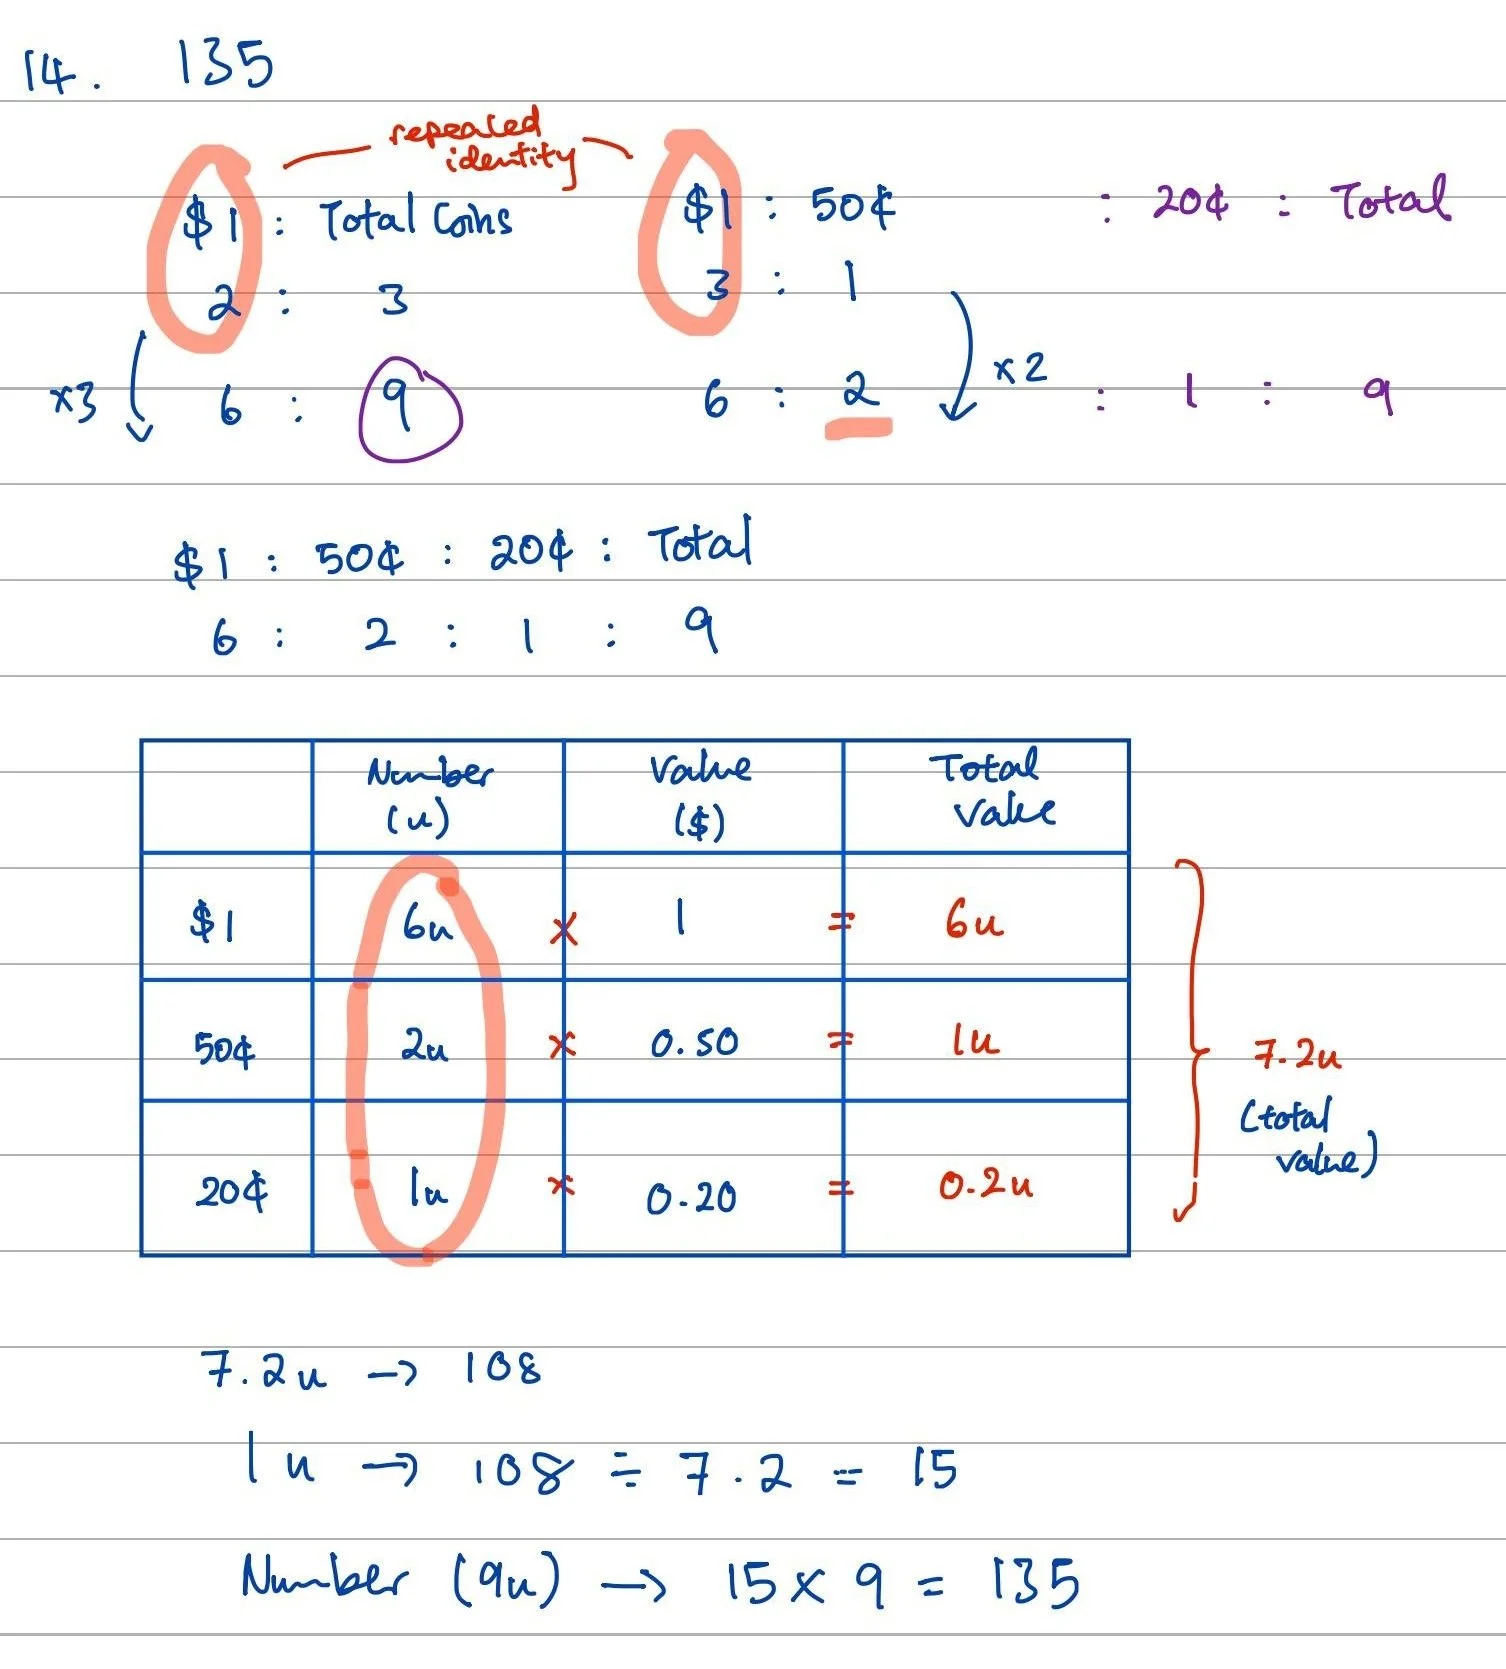 14. 135
repeated
identity
$1 : Total Coins
$1 : 50¢ : 20¢ : Total
2 : 3
3 : 1
x3
6 : 9
6 : 2
x2
: 1 : 9
$1 : 50¢ : 20¢ : Total
6 : 2 : 1 : 9
Number
(u)
Value
($)
Total
Value
$1 6u × 1 = 6u
50¢ 2u × 0.50 = 1u
20¢ 1u × 0.20 = 0.2u
7.2u
(total
value)
7.2u → 108
1u → 108 ÷ 7.2 = 15
Number (9u) → 15 × 9 = 135